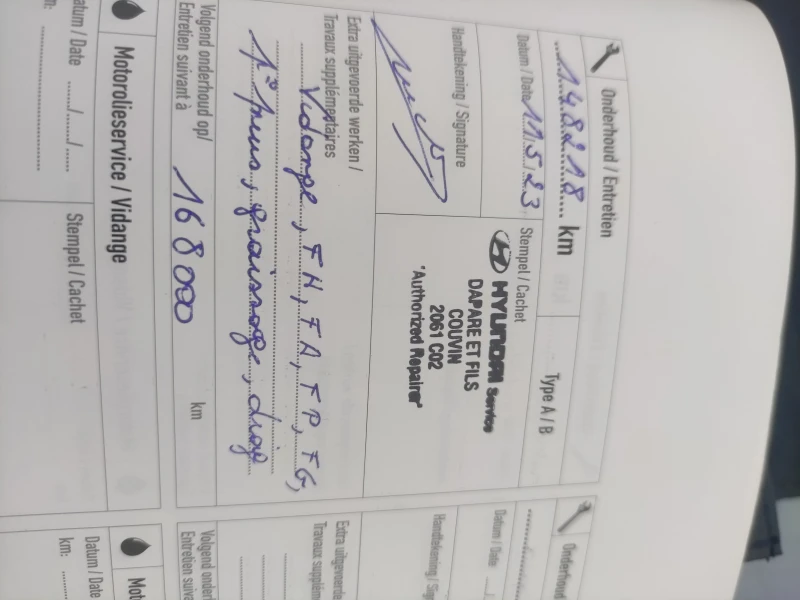 Onderhoud / Entretien
148218 km
Type A / B
Datum / Date 11.5.23
Stempel / Cachet
HYUNDAI Service
DAPARE ET FILS
COUVIN
2061 C02
"Authorized Repairer"
Handtekening / Signature
Extra uitgevoerde werken /
Travaux supplémentaires
Vidange, FH, FA, FP, FG,
pneus, graissage, diag
Volgend onderhoud op/
Entretien suivant à
168000 km
Motorolieservice / Vidange
Datum / Date ..../..../....
Stempel / Cachet
km:
Onderhoud
Datum / Date
Handtekening / Sig
Extra uitgevoerde
Travaux supplém
Volgend onder
Entretien suiva
Mot
Datum / Date
km: